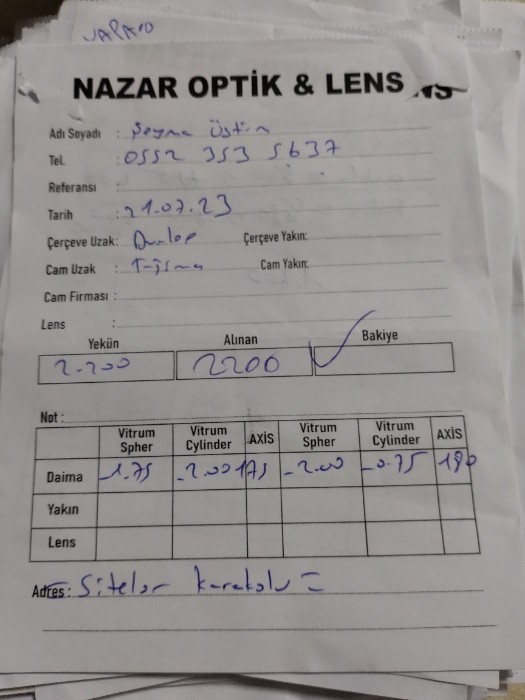 NAZAR OPTİK & LENS
Adı Soyadı : Şeyma Üstün
Tel. : 0552 353 5637
Referansı :
Tarih : 21.07.23
Çerçeve Uzak: Dunlop Çerçeve Yakın:
Cam Uzak : Cam Yakın:
Cam Firması :
Lens :
Yekün Alınan Bakiye
2.200 2200
Not :
Vitrum Spher Vitrum Cylinder AXİS Vitrum Spher Vitrum Cylinder AXİS
Daima -1.75 -2.00 175 -2.00 -0.75 180
Yakın
Lens
Adres : Siteler karakolu